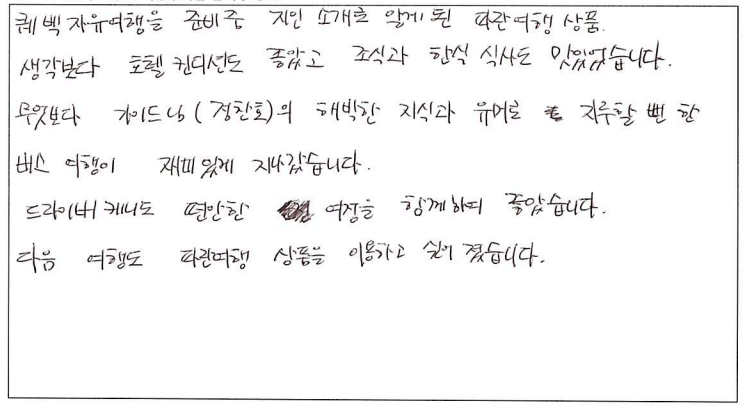 퀘벡 자유여행을 준비중 지인 소개로 알게 된 파란여행 상품.
생각보다 호텔 컨디션도 좋았고 조식과 한식 식사도 맛있었습니다.
무엇보다 가이드님(정찬호)의 해박한 지식과 유머로 지루할 뻔 한
버스 여행이 재미있게 지나갔습니다.
드라이버 케니도 편안한 여정을 함께하여 좋았습니다.
다음 여행도 파란여행 상품을 이용하고 싶어 졌습니다.